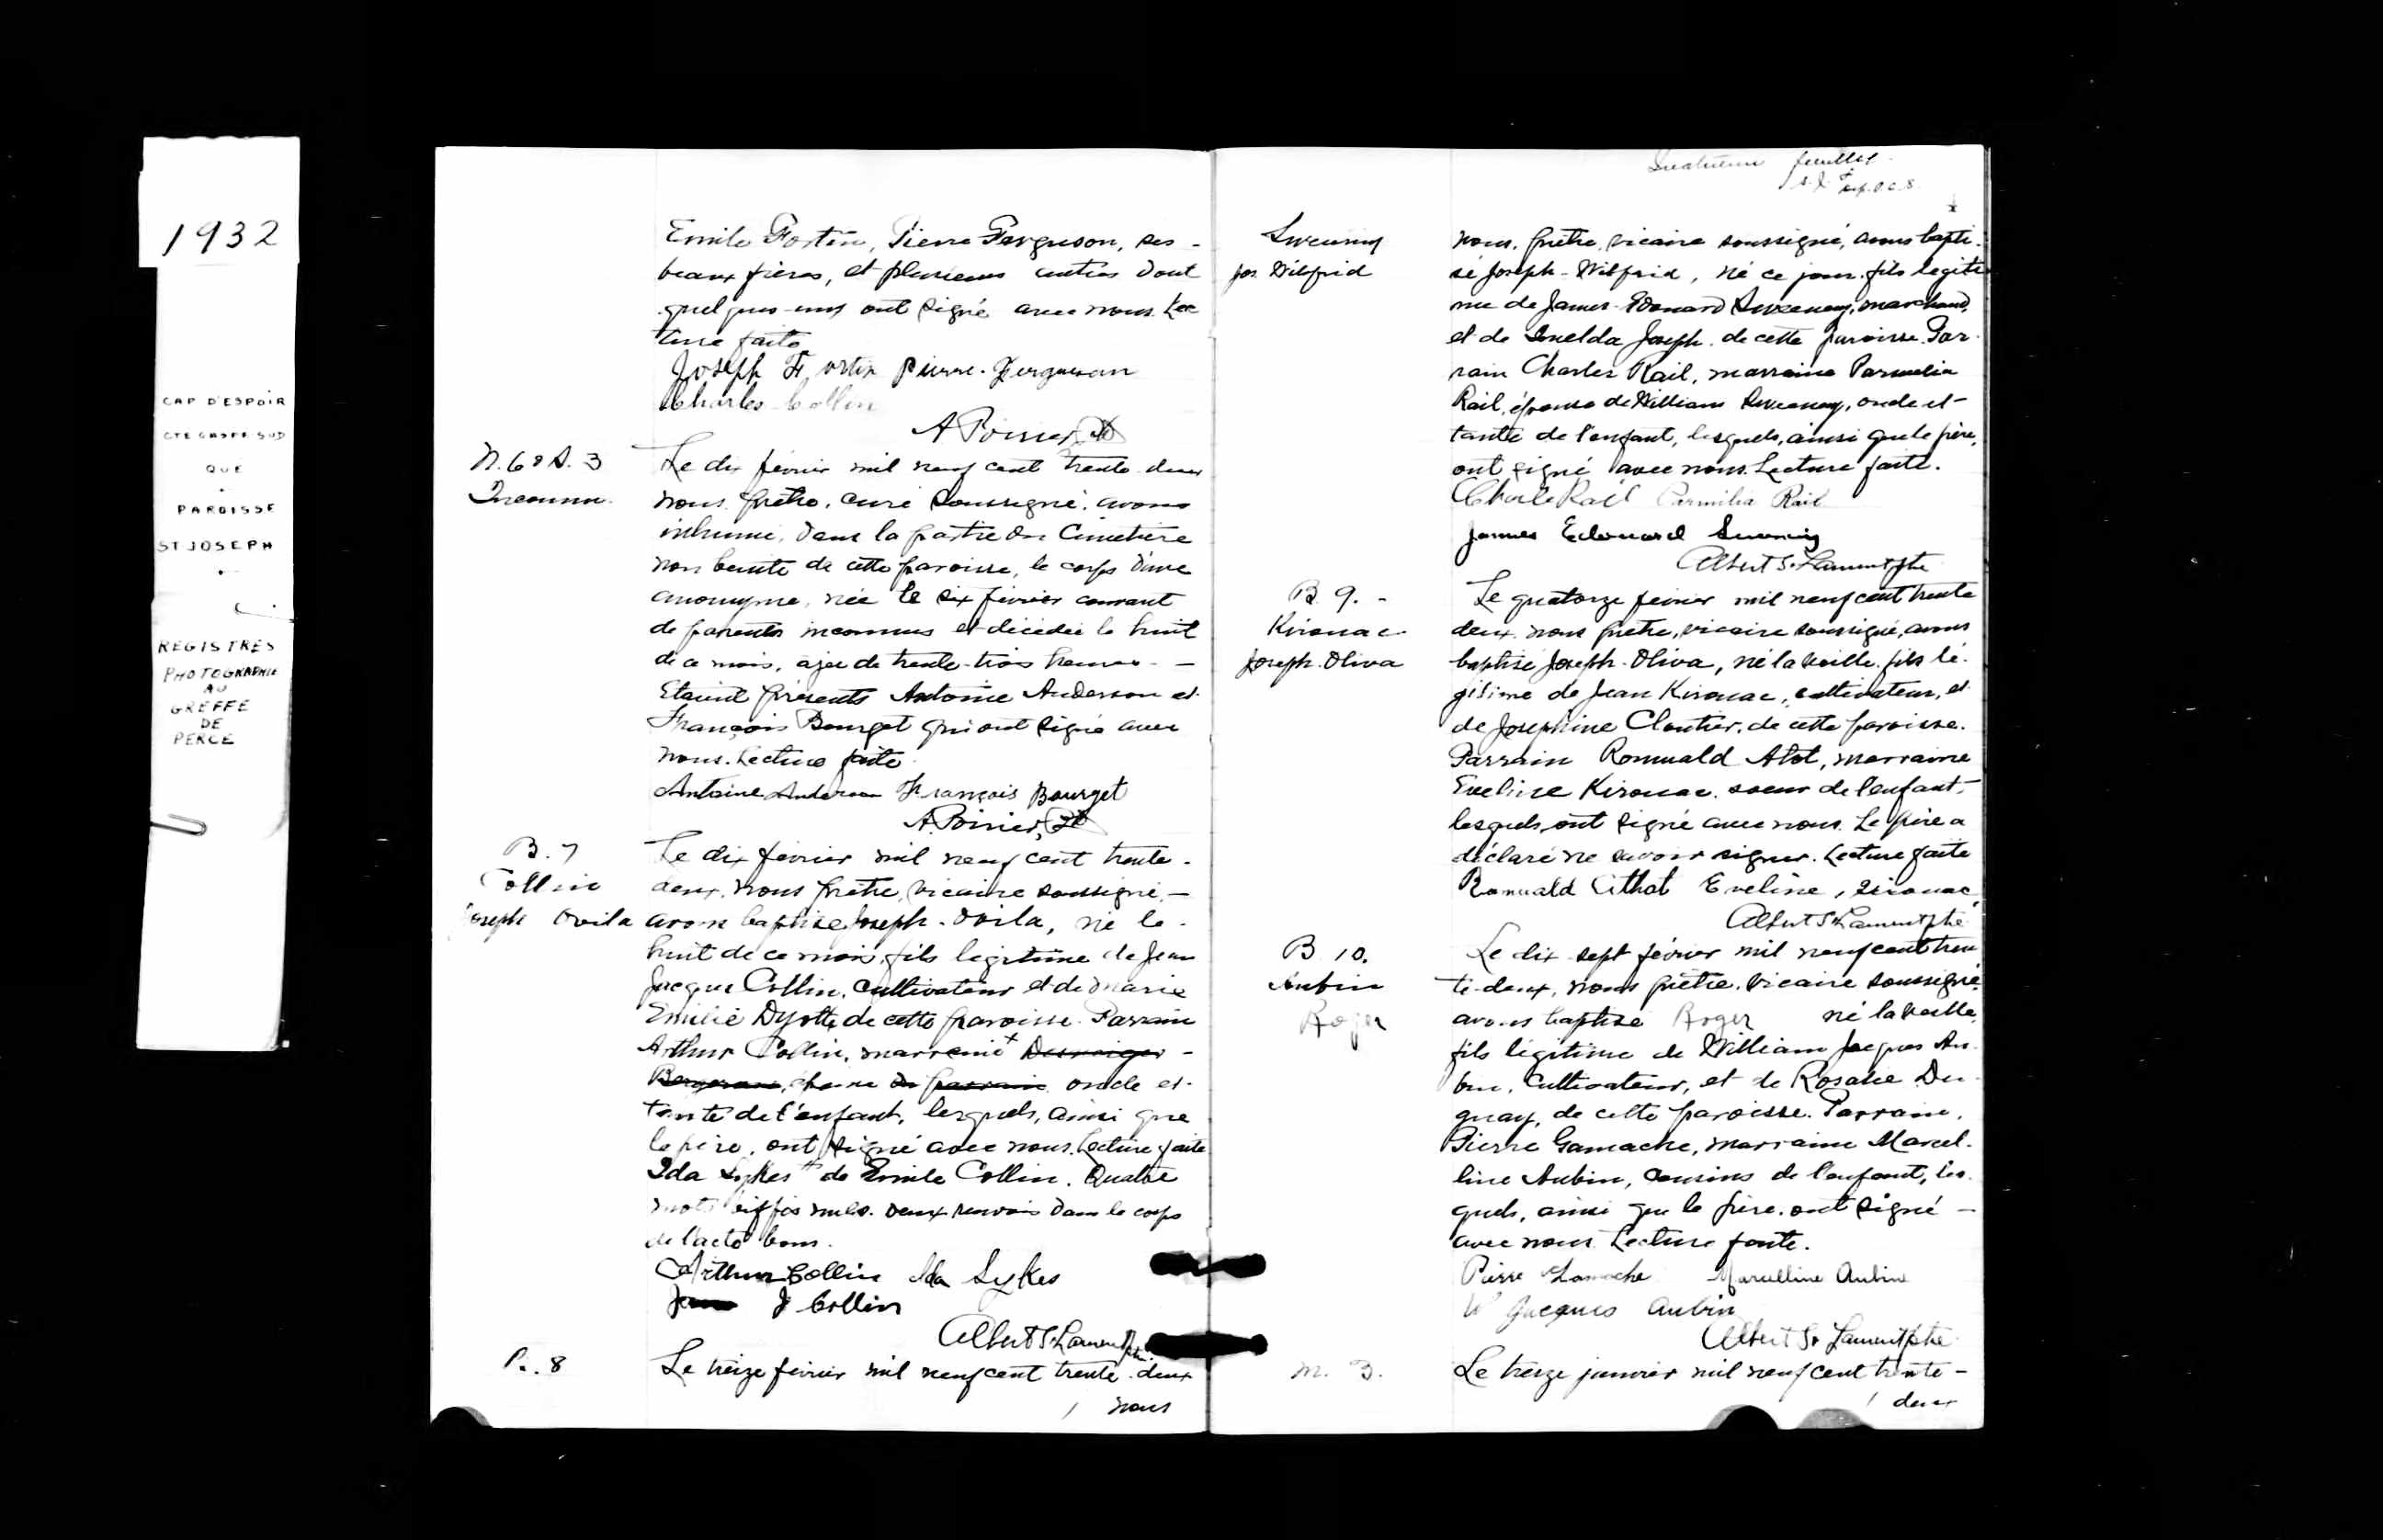 1932
CAP D'ESPOIR
CTE GASPE SUD
QUE
PAROISSE
ST JOSEPH
REGISTRES
PHOTOGRAPHIE
AU
GREFFE
DE
PERCE
Emile Fortin, Pierre Ferguson, ses
beaux frères, et plusieurs autres dont
quelques-uns ont signé avec nous. Lec
ture faite
Joseph Fortin Pierre Ferguson
Charles Collin
A Poirier, Ptre
N. 6 & S. 3
Inconnu
Le dix février mil neuf cent trente-deux
nous prêtre, curé soussigné, avons
inhumé, dans la partie du cimetière
non bénite de cette paroisse, le corps d'une
anonyme, née le six février courant
de parents inconnus et décédée le huit
de ce mois, agée de trente-trois heures
Etaient présents Antoine Anderson et
François Bourget qui ont signé avec
nous. Lecture faite
Antoine Anderson François Bourget
A. Poirier, Ptre
B. 7
Collin
Joseph Ovila
Le dix février mil neuf cent trente-
deux, nous prêtre, vicaire soussigné,
avons baptisé Joseph-Ovila, né le
huit de ce mois, fils légitime de Jean
Jacques Collin, cultivateur et de Marie
Emilie Dyotte de cette paroisse. Parrain
Arthur Collin, marraine
oncle et
tante de l'enfant, lesquels, ainsi que
le père, ont signé avec nous. Lecture faite
Ida Sykes de Emile Collin. Quatre
mots biffés nuls. deux renvois dans le corps
de l'acte bons.
Arthur Collin Ida Sykes
J Collin
Albert St Laurent ptre
B. 8
Le treize février mil neuf cent trente-deux
nous
Quatrième feuillet
Sweeney
Jos. Wilfrid
nous, prêtre, vicaire soussigné, avons bapti-
sé Joseph-Wilfrid, né ce jour, fils légiti
me de James-Edouard Sweeney, marchand,
et de Imelda Joseph, de cette paroisse. Par-
rain Charles Rail, marraine Parmelia
Rail, épouse de William Sweeney, oncle et
tante de l'enfant, lesquels, ainsi que le père,
ont signé avec nous. Lecture faite.
Charle Rail Parmilia Rail
James Edouard Sweeney
Albert St Laurent ptre
B. 9.
Kirouac
Joseph-Oliva
Le quatorze février mil neuf cent trente
deux, nous prêtre, vicaire soussigné, avons
baptisé Joseph-Oliva, né la veille, fils lé-
gitime de Jean Kirouac, cultivateur, et
de Josephine Cloutier, de cette paroisse.
Parrain Romuald Atot, marraine
Eveline Kirouac, soeur de l'enfant,
lesquels, ont signé avec nous. Le père a
déclaré ne savoir signer. Lecture faite
Romuald Athot Eveline, Kirouac
Albert St Laurent ptre
B 10.
Aubin
Roger
Le dix-sept février mil neuf cent tren
te-deux, nous prêtre, vicaire soussigné,
avons baptisé Roger né la veille,
fils légitime de William Jacques Au
bin, cultivateur, et de Rosalie Du
guay, de cette paroisse. Parrain,
Pierre Gamache, marraine Marcel-
line Aubin, cousins de l'enfant, les
quels, ainsi que le père, ont signé
avec nous Lecture faite.
Pierre Gamache Marcelline Aubin
W Jacques Aubin
Albert St Laurent ptre
M. 3.
Le treize janvier mil neuf cent trente-
deux